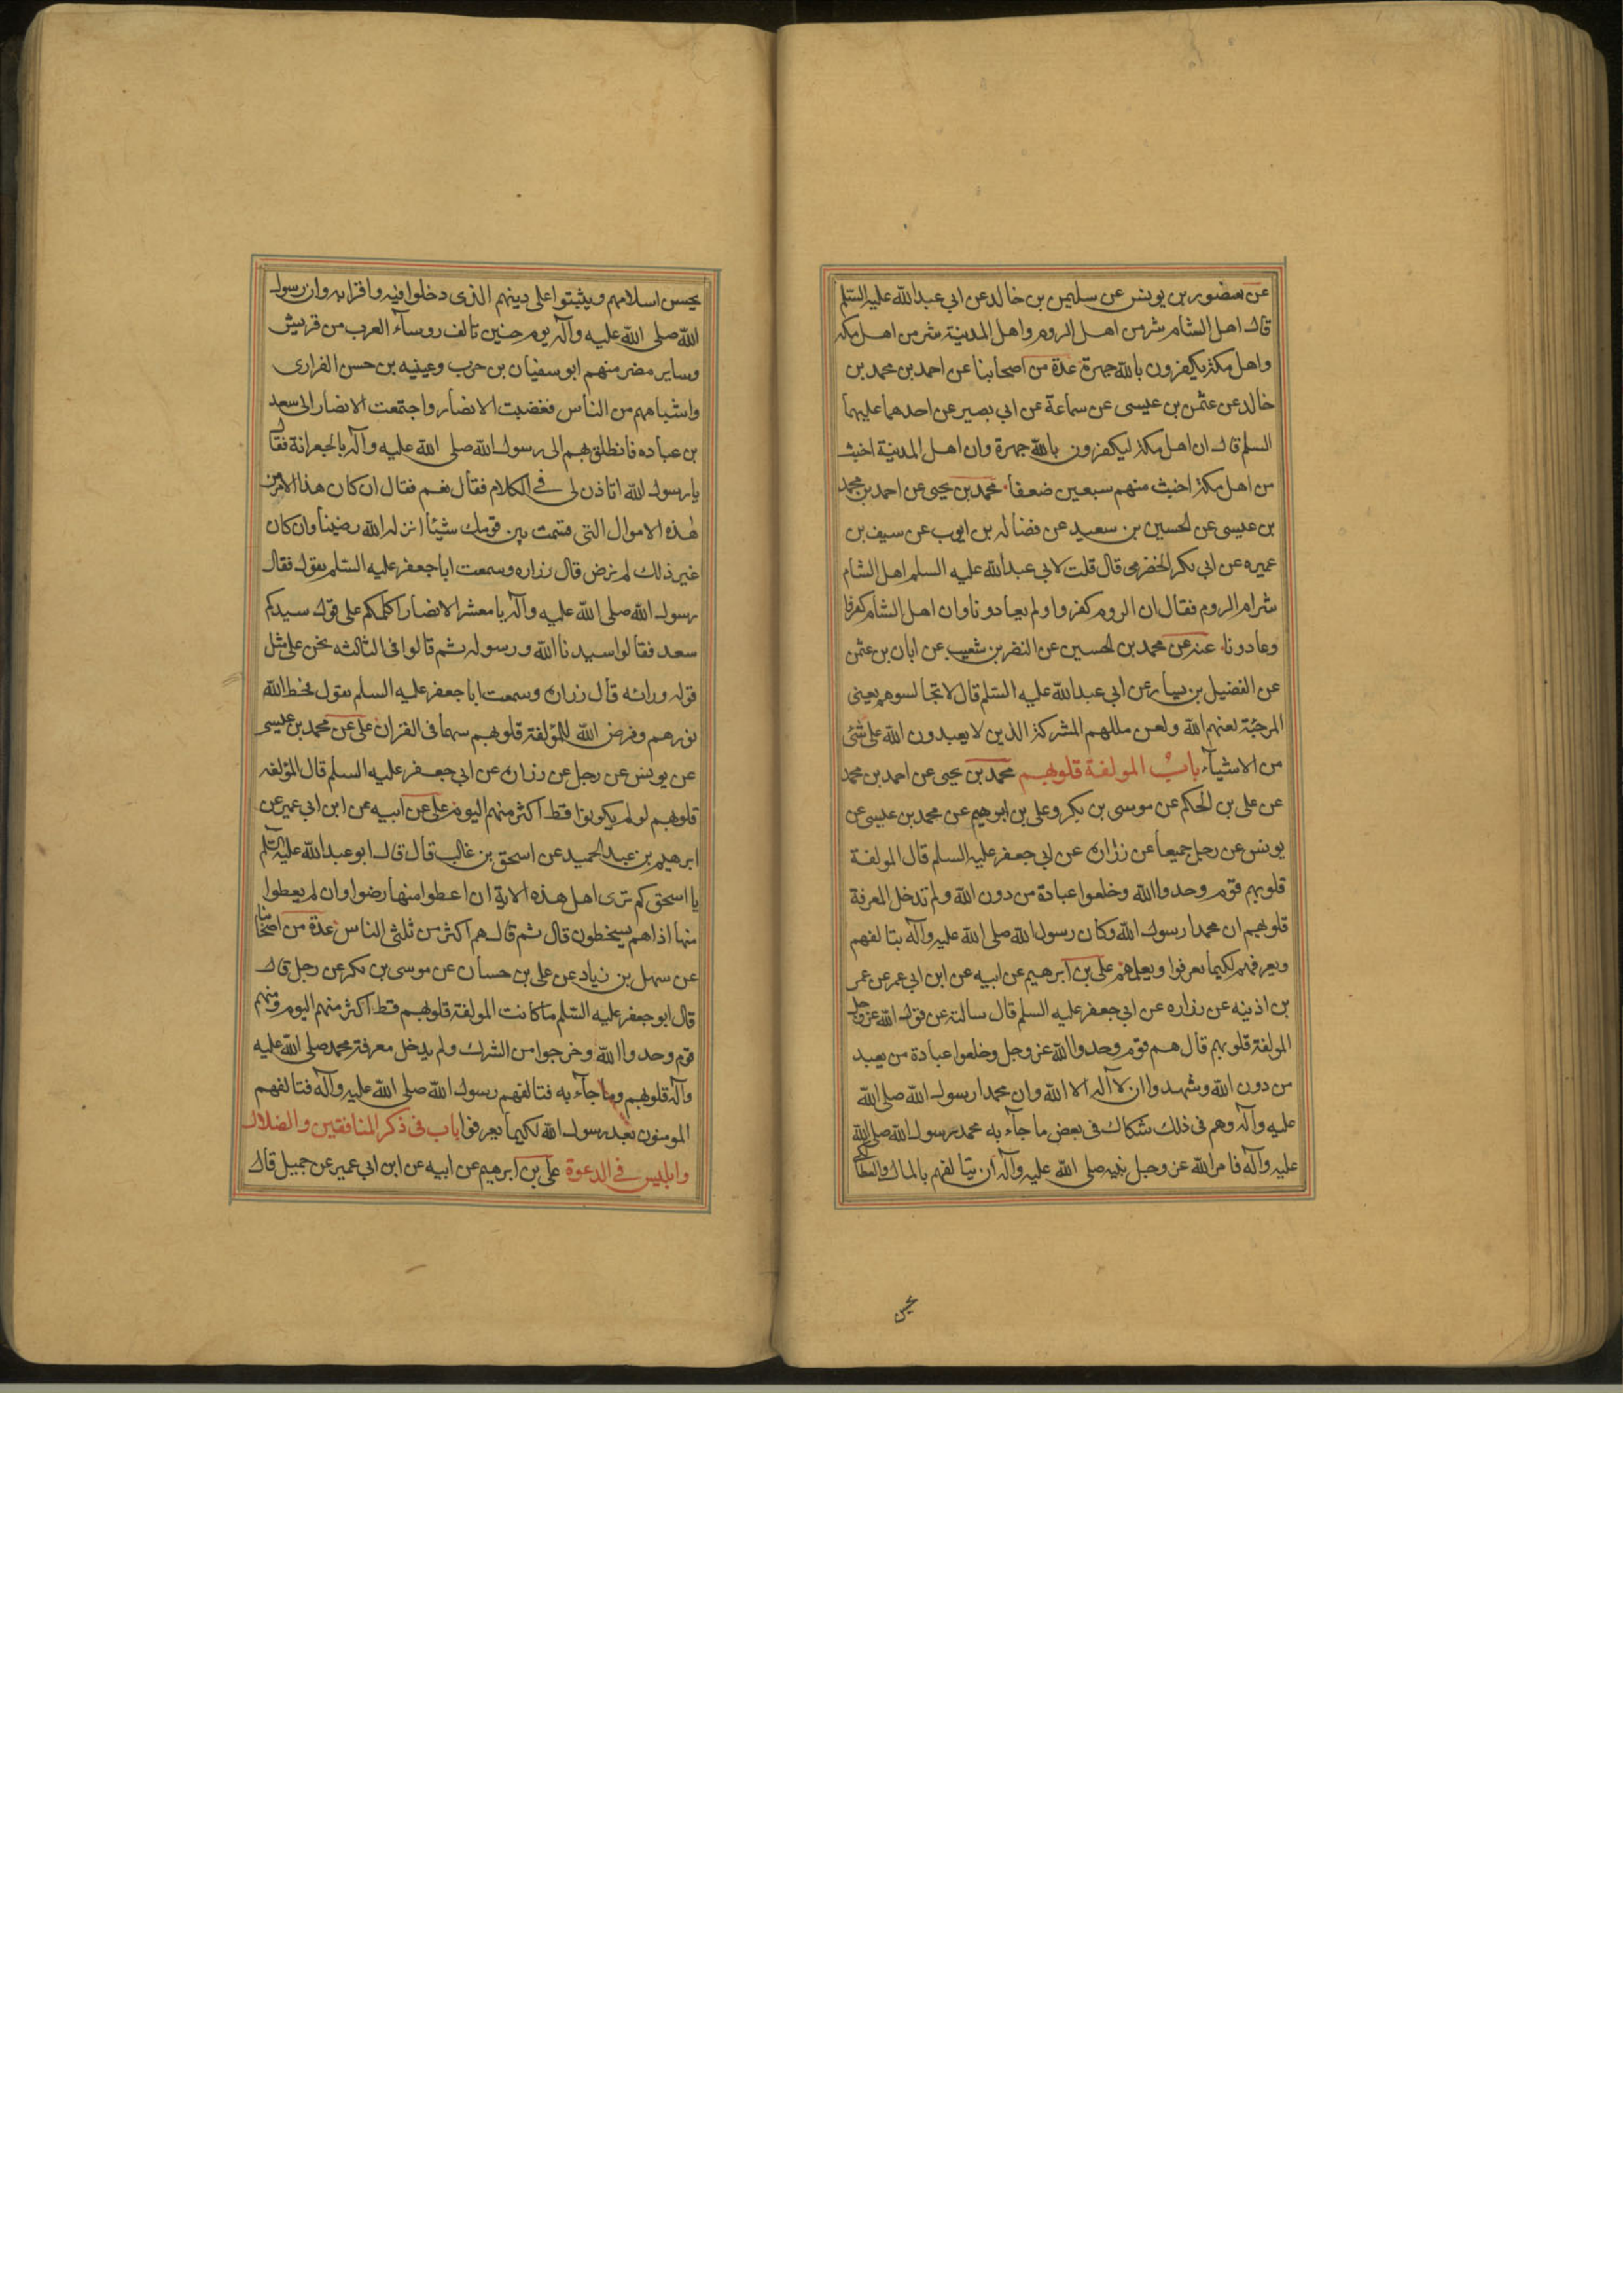 عن منصور بن يونس عن سليمن بن خالد عن ابي عبدالله عليه السلم
قال اهل الشام شر من اهل الروم واهل المدينة شر من اهل مكة
واهل مكة يكفرون بالله جهرة عدة من اصحابنا عن احمد بن محمد بن
خالد عن عثمن بن عيسى عن سماعة عن ابي بصير عن احدهما عليهما
السلم قال ان اهل مكة ليكفرون بالله جهرة وان اهل المدينة اخبث
من اهل مكة اخبث منهم سبعين ضعفا محمد بن يحيى عن احمد بن محمد
بن عيسى عن الحسين بن سعيد عن فضاله بن ايوب عن سيف بن
عميره عن ابي بكر الحضرمى قال قلت لابي عبدالله عليه السلم اهل الشام
شر ام الروم فقال ان الروم كفروا ولم يعادونا وان اهل الشام كفروا
وعادونا عنه عن محمد بن الحسين عن النضر بن شعيب عن ابان بن عثمن
عن الفضيل بن يسار عن ابي عبدالله عليه السلم قال لا تجالسوهم يعنى
المرجئة لعنهم الله ولعن مللهم المشركة الذين لا يعبدون الله على شئ
من الاشيآء باب المولفة قلوبهم محمد بن يحيى عن احمد بن محمد
عن على بن الحكم عن موسى بن بكر وعلى بن ابرهيم عن محمد بن عيسى عن
يونس عن رجل جميعا عن زرارة عن ابي جعفر عليه السلم قال المولفة
قلوبهم قوم وحدوا الله وخلعوا عبادة من دون الله ولم تدخل المعرفة
قلوبهم ان محمدا رسول الله وكان رسول الله صلى الله عليه وآله يتالفهم
ويعرفهم لكيما يعرفوا ويعلمهم على بن ابرهيم عن ابيه عن ابن ابي عمر عن عمر
بن اذينه عن زراره عن ابي جعفر عليه السلم قال سالته عن قول الله عز وجل
المولفة قلوبهم قال هم قوم وحدوا الله عز وجل وخلعوا عبادة من يعبد
من دون الله وشهدوا ان لا آله الا الله وان محمدا رسول الله صلى الله
عليه وآله وهم فى ذلك شكاك فى بعض ما جآء به محمد رسول الله صلى الله
عليه وآله فامر الله عز وجل نبيه صلى الله عليه وآله ان يتالفهم بالمال والعطآ لكى
يحسن
يحسن اسلامهم ويثبتوا على دينهم الذى دخلوا فيه واقرا به وان رسول
الله صلى الله عليه وآله يوم حنين تالف روسآء العرب من قريش
وساير مضر منهم ابو سفيان بن حرب وعينيه بن حسن الفرارى
واشباههم من الناس فغضبت الانصار واجتمعت الانصار الى سعد
بن عباده فانطلق بهم الى رسول الله صلى الله عليه وآله بالجعرانة فقال
يا رسول الله اتاذن لى فى الكلام فقال نعم فقال ان كان هذا الامر من
هذه الاموال التى قسمت بين قومك شيئا انزله الله رضينا وان كان
غير ذلك لم نرض قال زراره وسمعت ابا جعفر عليه السلم يقول فقال
رسول الله صلى الله عليه وآله يا معشر الانصار اكلكم على قول سيدكم
سعد فقالوا سيدنا الله ورسوله ثم قالوا فى الثالثه نحن على مثل
قوله ورائه قال زرارة وسمعت ابا جعفر عليه السلم يقول فحط الله
نورهم وفرض الله للمؤلفة قلوبهم سهما فى القران على عن محمد بن عيسى
عن يونس عن رجل عن زرارة عن ابي جعفر عليه السلم قال المؤلفه
قلوبهم لو لم يكونوا قط اكثر منهم اليوم على عن ابيه عن ابن ابي عمير عن
ابرهيم بن عبد الحميد عن اسحق بن غالب قال قال ابو عبدالله عليه السلم
يا اسحق كم ترى اهل هذه الاية ان اعطوا منها رضوا وان لم يعطوا
منها اذا هم يسخطون قال ثم قال هم اكثر من ثلثى الناس عدة من اصحابنا
عن سهل بن زياد عن على بن حسان عن موسى بن بكر عن رجل قال
قال ابو جعفر عليه السلم ما كانت المولفة قلوبهم قط اكثر منهم اليوم وهم
قوم وحدوا الله وخرجوا من الشرك ولم يدخل معرفة محمد صلى الله عليه
وآله قلوبهم وما جآء به فتالفهم رسول الله صلى الله عليه وآله فتالفهم
المومنون بعد رسول الله لكيما يعرفوا باب فى ذكر المنافقين والضلال
وابليس فى الدعوة على بن ابرهيم عن ابيه عن ابن ابي عمير عن جميل قال